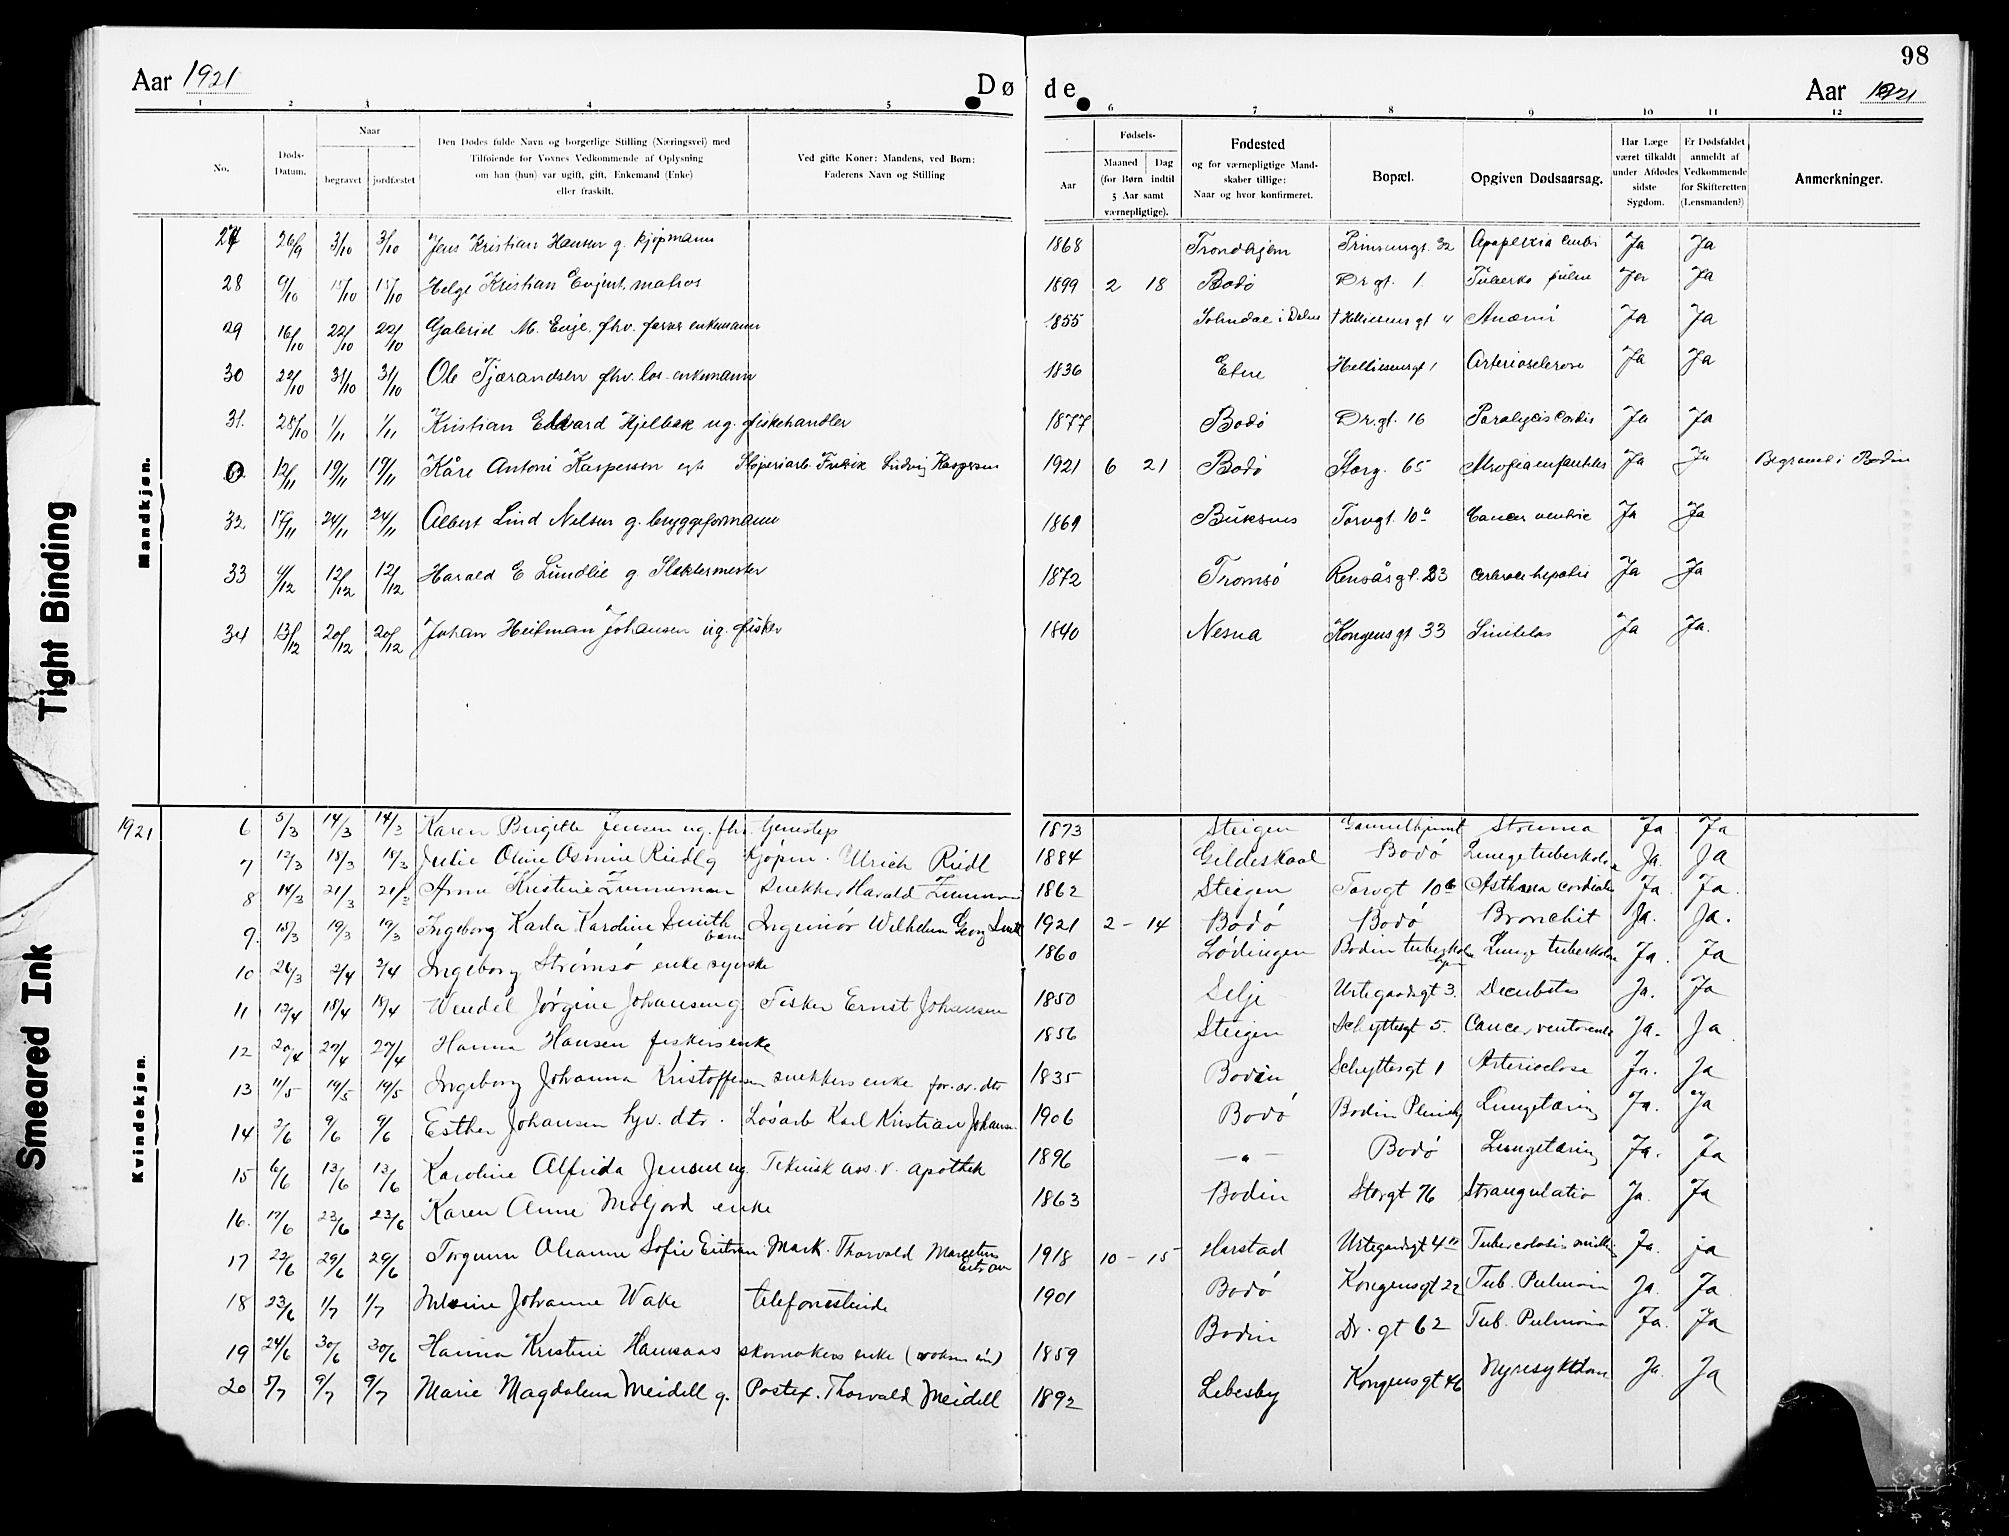 98
Aar 1921 Døde Aar 1921
1 2 3 4 5 6 7 8 9 10 11 12
No. Døds-Datum. Naar begravet jordfæstet
Den Dødes fulde Navn og borgerlige Stilling (Næringsvei) med Tilføiende for Voxnes Vedkommende af Oplysning om han (hun) var ugift, gift, Enkemand (Enke) eller fraskilt.
Ved gifte Koner: Mandens, ved Børn: Faderens Navn og Stilling
Aar Fødsels- Maaned Dag (for Børn indtil 5 Aar samt værnepligtige).
Fødested og for værnepligtige Mandskaber tillige: Naar og hvor konfirmeret.
Bopæl.
Opgiven Dødsaarsag.
Har Læge været tilkaldt under Afdødes sidste Sygdom.
Er Dødsfaldet anmeldt af Vedkommende for Skifteretten (Lensmanden?)
Anmerkninger.
Mandkjøn.
27 26/9 3/10 3/10 Jens Kristian Hansen g. kjøpmann 1868 Trondhjem Prinsensgt. 32 Ja Ja
28 9/10 15/10 15/10 Helge Kristian Evjent matros 1899 2 18 Bodø Dr gt. 1 Ja Ja
29 16/10 22/10 22/10 Gabriel M. fhv. enkemann 1855 gt 4 Anæmi Ja Ja
30 22/10 31/10 31/10 Ole Tjærandsen fhv. los. enkemann 1836 Etne Helliesensgt 1 Arteriosclerose Ja Ja
31. 28/10 1/11 1/11 Kristian Edvard Hjelbak ug. fiskehandler 1877 Bodø Dr. gt. 16 Paralysis Cordis Ja Ja
0. 12/11 19/11 19/11 Kåre Antoni Kaspersen Ludvig Kaspersen 1921 6 21 Bodø Storg. 65 Ja Ja Begravet i Bodin
32. 17/11 24/11 24/11 Albert Lind Nelsen g. bryggeformann 1869 Buksnes Torvgt. 10a Cancer ventric Ja Ja
33 4/12 12/12 12/12 Harald E Lundlie g. Slaktermester 1872 Tromsø Rensåsgt. 23 hepatis Ja Ja
34 13/12 20/12 20/12 Johan Heitman Johansen ug. fisker 1840 Nesna Kongensgt 33 Ja Ja.
1921
Kvindekjøn.
6 5/3 14/3 14/3 Karen Birgitte Jensen ug. fhv. 1873 Steigen Gamelhjemt Struma Ja Ja
7 12/3 18/3 18/3 Julie Oline Osmine Riedl g Kjøpm. Ulrich Riedl 1884 Gildeskaal Bodø Lungetuberkolose Ja. Ja
8 14/3 21/3 21/3 Anna Kristine Zimmerman Snekker Harald Zimmerm 1862 Steigen Torvgt 10b Asthma cordiale Ja. Ja.
9. 15/3 19/3 19/3 Ingeborg Karla Karoline Smith barn Ingeniør Wilhelm Georg Smith 1921 2 - 14 Bodø Bodø Bronchit Ja. Ja.
10 26/3 2/4 2/4 Ingeborg Strømsø enke syerske 1860 Lødingen Bodin tuberkulosehjem Lunge tuberkulose Ja. Ja
11 12/4 18/4 18/4 Wendel Jørgine Johansen g Fisker Ernst Johansen 1850 Selje Urtegaardsgt 3. Decubitus Ja. Ja
12 20/4 27/4 27/4 Hanna Hansen fiskers enke 1856 Steigen Schyttesgt 5. Cancer ventricule Ja. Ja
13 11/5 19/5 19/5 Ingeborg Johanna Kristoffersen snekkers enke for. av. dtr 1835 Bodin Schyttesgt 1 Arterioclose Ja. Ja
14 2/6 9/6 9/6 Esther Johansen hjv. dtr. Løsarb Karl Kristian Johansen 1906 Bodø Bodin Pleiehj Lungetæring Ja. Ja
15 6/6 13/6 13/6 Karoline Alfrida Jensen ug. Teknisk ass. v. apothek 1896 — " — Bodø Lungetæring Ja. Ja
16. 17/6 23/6 23/6 Karen Anne Moljord enke 1863 Bodin Storgt 76 Strangulatio Ja. Ja
17 22/6 29/6 29/6 Torgunn Ohanna Sofie Eitran Mask. Thorvald Martetins Eitran 1918 10 - 15 Harstad Urtegardsgt 4 Ja. ja
18 23/6 1/7 1/7 Johanne Wake telefonistinde 1901 Bodø Kongensgt 22 Tub. Pulmoin Ja. Ja
19 24/6 30/6 30/6 Hanna Kristine Hansaas skomakers enke (voksen søn) 1859 Bodin Dr. gt 62 Tub. Pulmoin Ja. Ja
20 5/7 9/7 9/7 Marie Magdalena Meidell g. Postex. Thorvald Meidell 1892 Lebesby Kongensgt 46 Nyresykdom Ja. Ja
Tight Binding
Smeared Ink